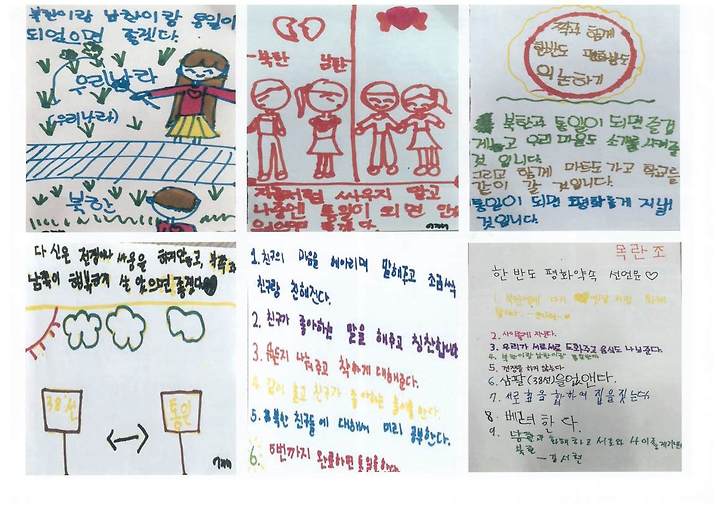 북한이랑 남한이랑 통일이
되었으면 좋겠다.
우리나라
(우리나라)
북한
북한 남한
지금처럼 싸우지 말고
나중엔 통일이 되면
함께
한반도 평화
북한과 통일이 되면 즐겁
게 놀고 우리 마을도 소개를 시켜줄
것 입니다.
그리고 함께 마트도 가고 학교를
같이 갈 것입니다.
통일이 되면 평화롭게 지낼
것입니다.
다 신은 전쟁이나 싸움을 하지않고, 북쪽과
남쪽이 행복하게 살 았으면 좋겠다
38선
통일
1. 친구의 마음을 헤아리며 말해주고 조금씩
친구랑 친해진다.
2. 친구가 좋아하는 말을 해주고 칭찬합니다
3. 뭐든지 나눠주고 착하게 대해준다.
4. 같이 놀고 친구가 좋아하는 놀이를 한다.
5. 북한 친구들에 대해서 미리 공부한다.
6. 5번까지 완료하면 통일을한다.
목란 조
한 반도 평화약속 선언문♡
1. 북한에게
2. 사이좋게 지낸다.
3. 우리가 서로서로 도와주고 음식도 나눠준다.
4. 북한이랑 남한이랑
5. 전쟁을 하지 않는다
6. 삼팔(38선)을없앤다.
7. 서로 힘을 합하여 집을 짓는다
8.
9. 화해하고 서로와 사이좋게지낸다